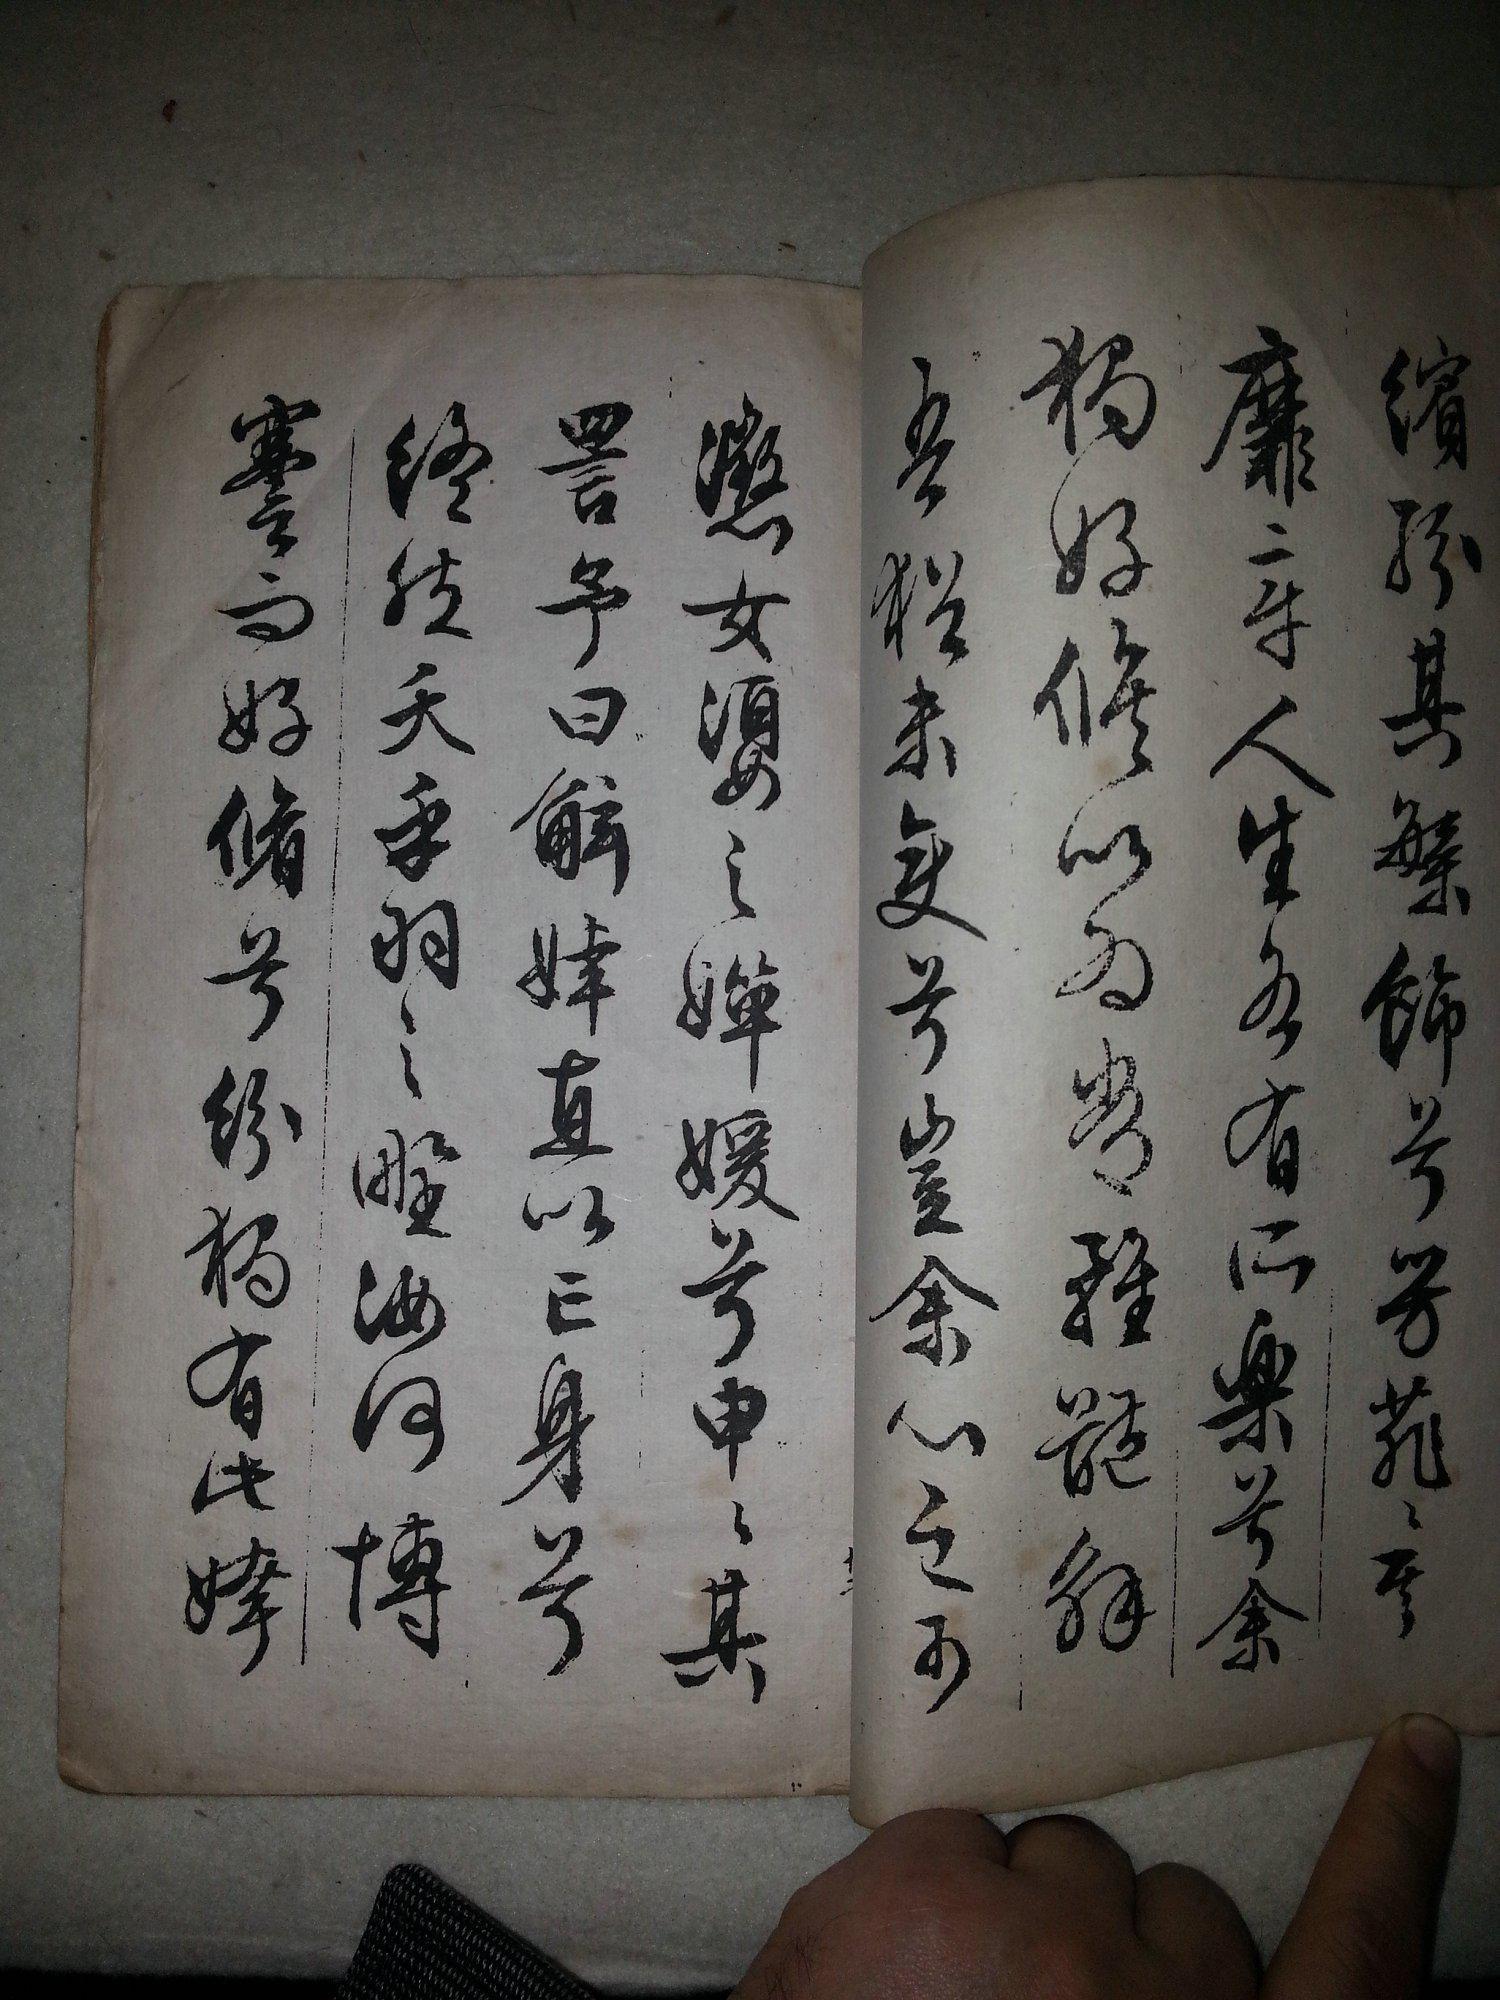 繽紛其繁飾兮芳菲〻其
靡章人生各有所樂兮余
獨好脩以為常雖體解
吾猶未變兮豈余心之可
懲女嬃之嬋媛兮申〻其
詈予曰鮌婞直以亡身兮
終然夭乎羽之野汝何博
謇而好脩兮紛獨有此姱